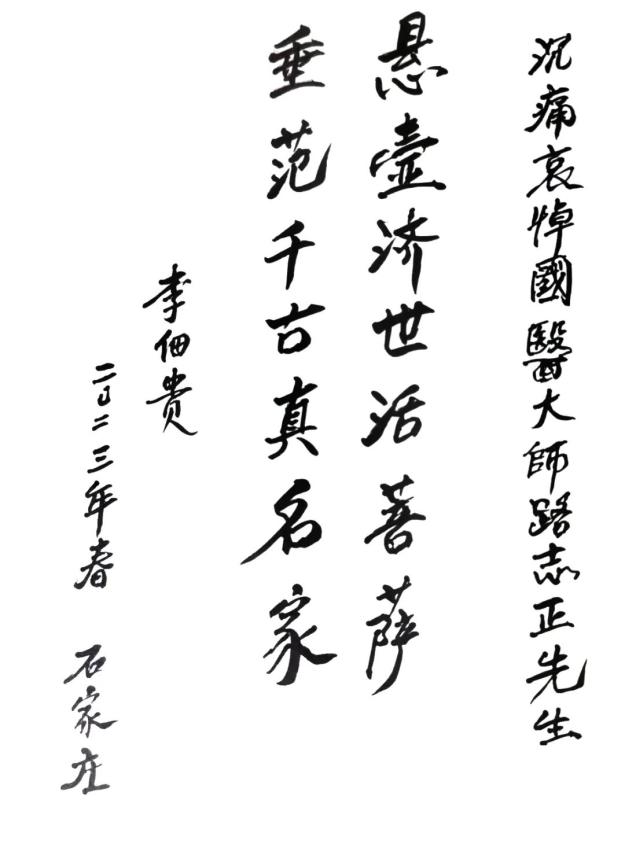 沉痛哀悼國醫大師路志正先生
悬壶济世活菩萨
垂范千古真名家
李佃贵
二〇二三年春 石家庄